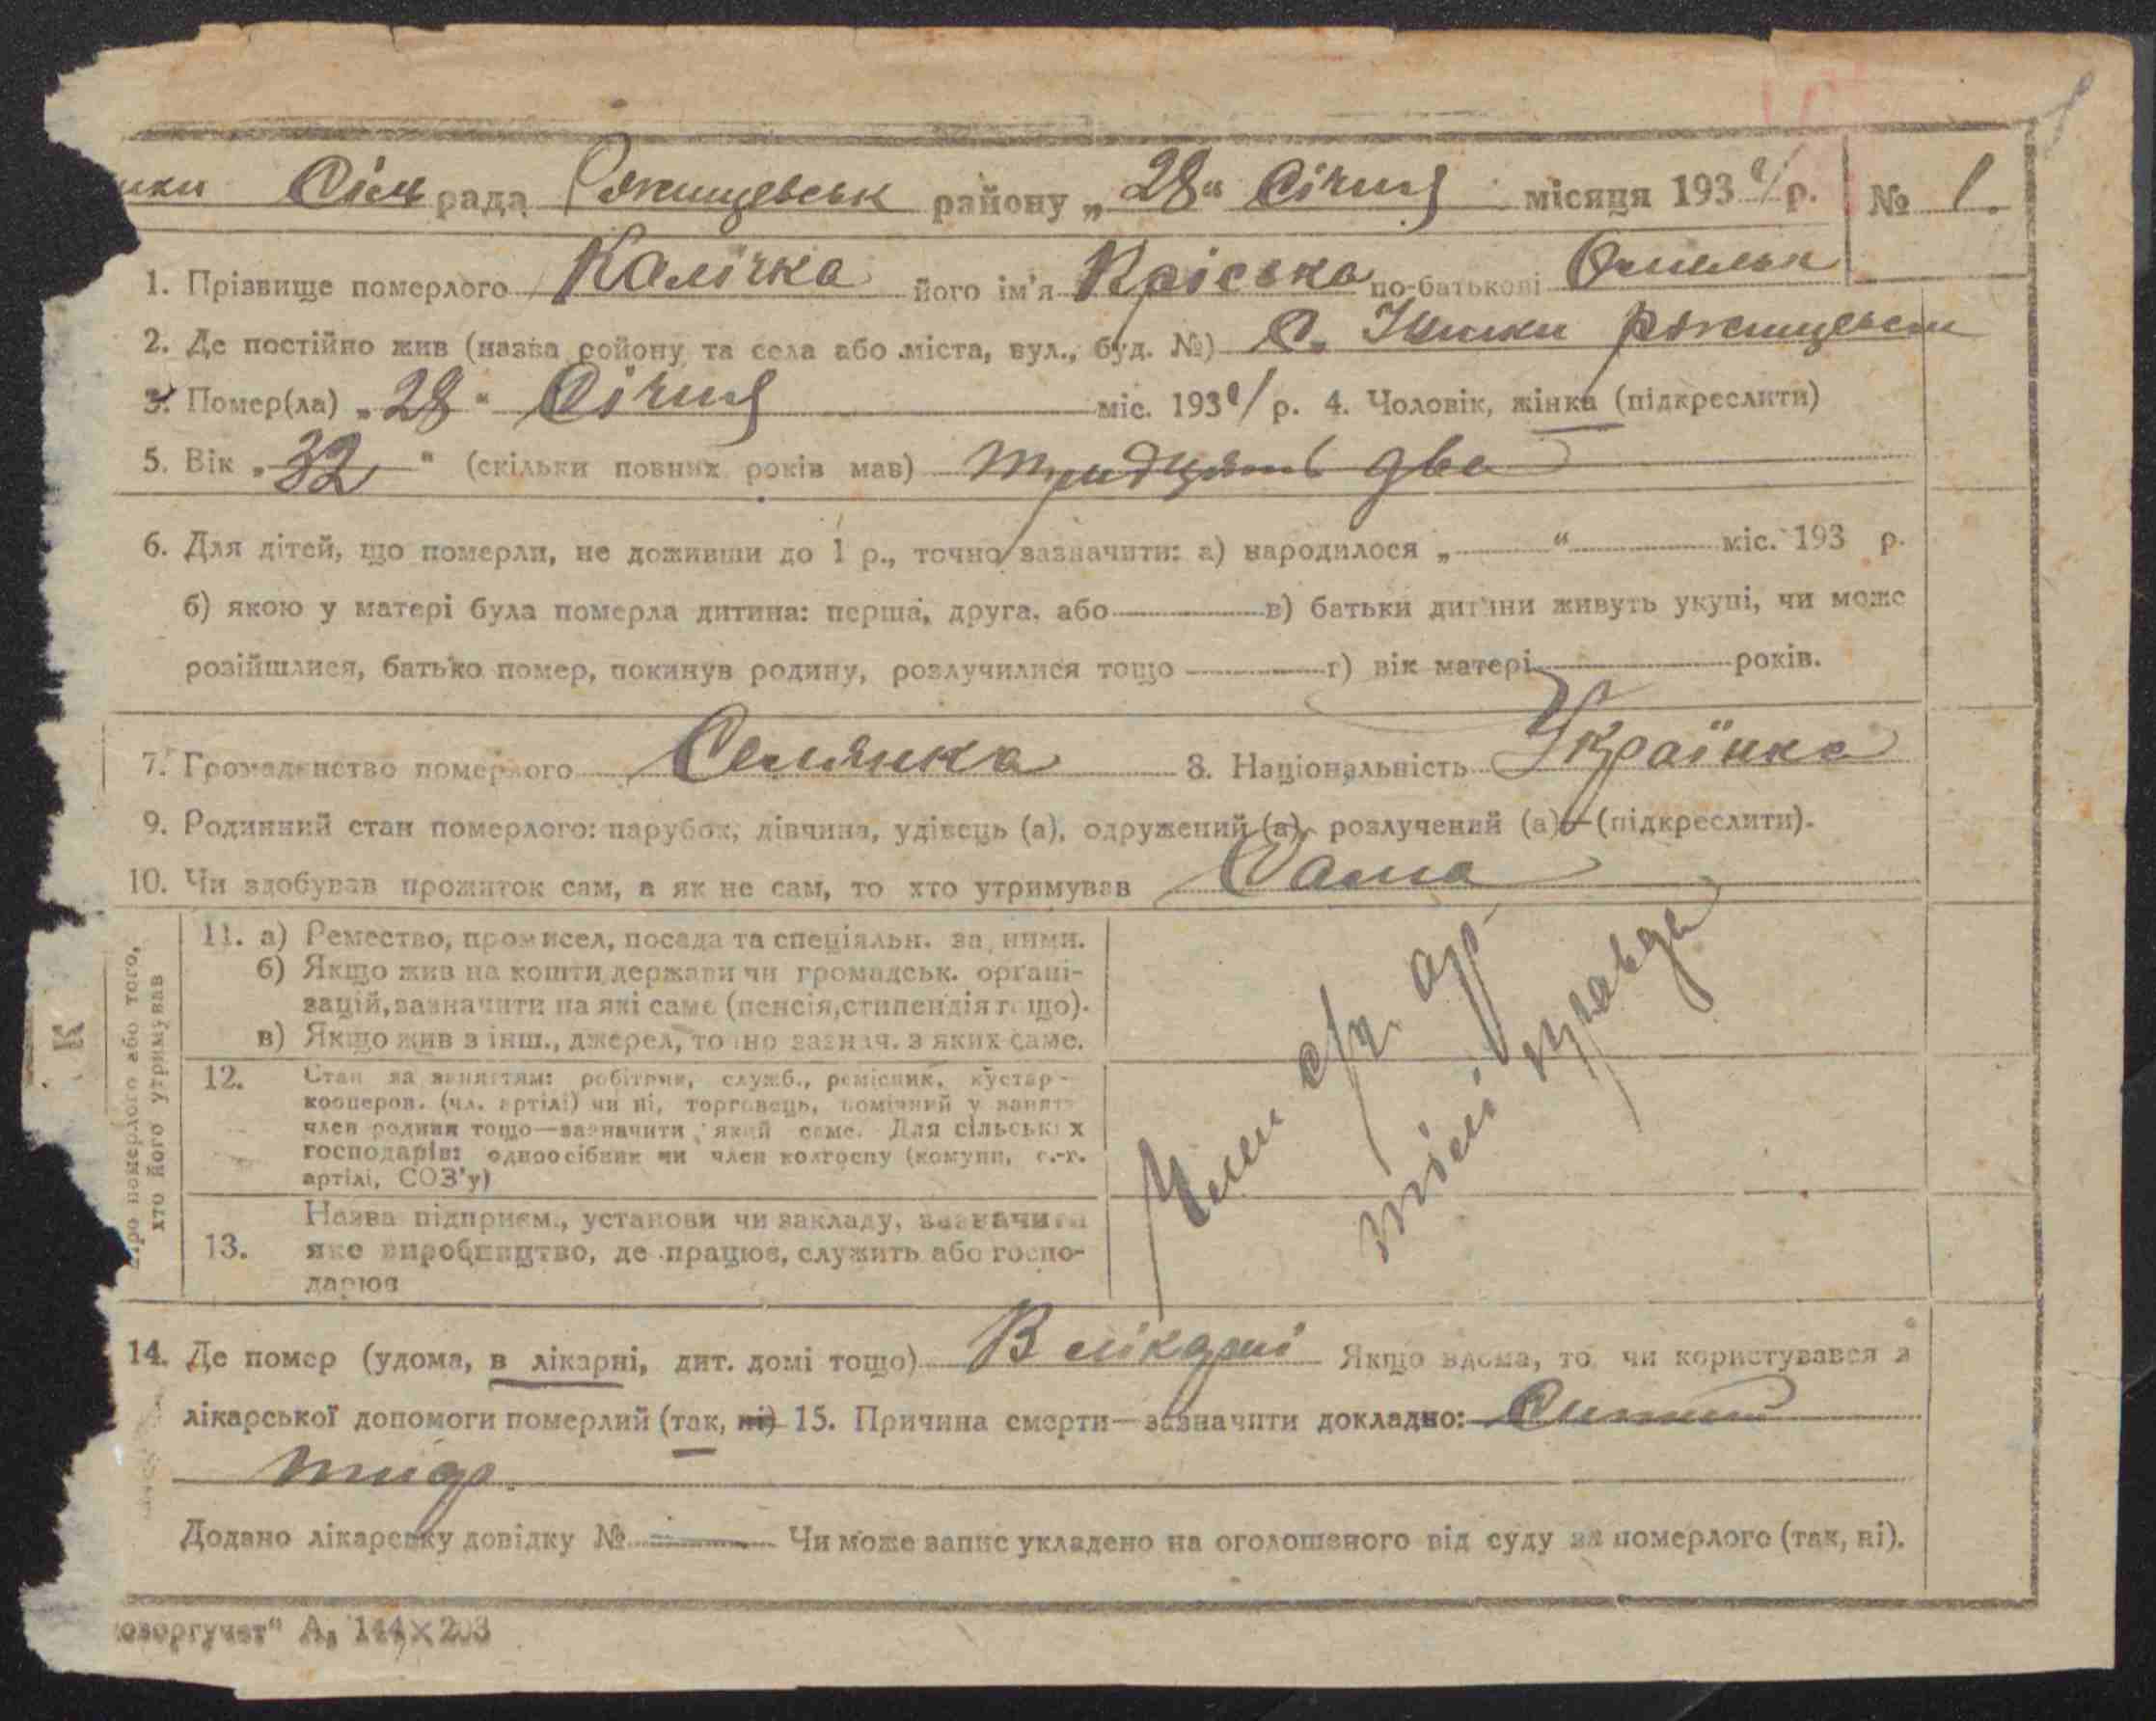 Сіль рада район у „28“ Січня місяця 193 р. № 1.
1. Прізвище померлого Калічка його ім'я Пріська по-батькові Омельк
2. Де постійно жив (назва району та села або міста, вул., буд. №) С.
3. Помер(ла) „28“ Січня міс. 193 р. 4. Чоловік, жінка (підкреслити)
5. Вік „32“ (скільки повних років мав) тридцять два
6. Для дітей, що померли, не доживши до 1 р., точно зазначити: а) народилося „ “ міс. 193 р.
б) якою у матері була померла дитина: перша, друга, або в) батьки дитини живуть укупі, чи може
розійшлися, батько помер, покинув родину, розлучилися тощо г) вік матері років.
7. Громадянство померлого Селянка 8. Національність Українка
9. Родинний стан померлого: парубок, дівчина, удівець (а), одружений (а), розлучений (а)—(підкреслити).
10. Чи здобував прожиток сам, а як не сам, то хто утримував Сама
Про померлого або того,
хто його утримував
11. а) Ремество, промисел, посада та спеціяльн. за ними.
б) Якщо жив на кошти держави чи громадськ. органі-
зацій, зазначити на які саме (пенсія, стипендія тощо).
в) Якщо жив з інш., джерел, точно зазнач. з яких саме.
12. Стан за заняттям: робітник, служб., ремісник, кустар-
кооперов. (чл. артілі) чи ні, торговець, помічний у занят.
член родини тощо—зазначити який саме. Для сільських
господарів: одноосібник чи член колгоспу (комуни, с.-г.
артілі, СОЗ'у)
13. Назва підприєм., установи чи закладу, зазначити
яке виробництво, де працює, служить або госпо-
дарює
Член с/г. ар
правда
14. Де помер (удома, в лікарні, дит. домі тощо) В лікарні Якщо вдома, то чи користувався з
лікарської допомоги померлий (так, ні) 15. Причина смерти—зазначити докладно:
тиф.
Додано лікарську довідку № Чи може запис укладено на оголошеного від суду за померлого (так, ні).
144×203
К